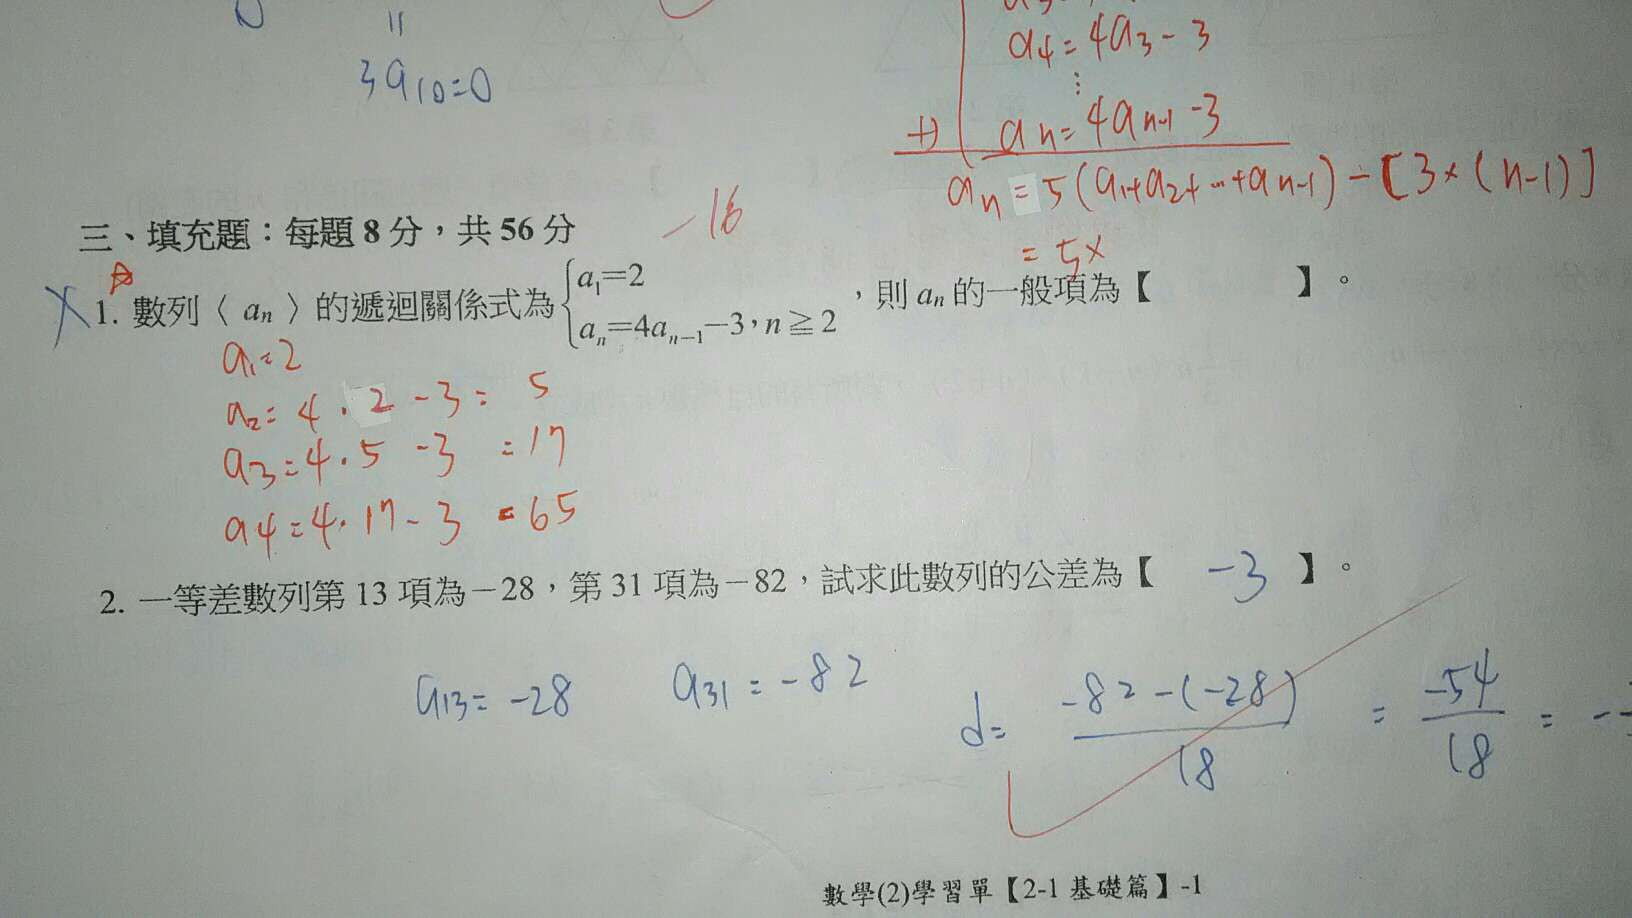 〃
3a₁₀=0
a₄=4a₃-3
⋮
+) aₙ=4aₙ₋₁-3
aₙ=5(a₁+a₂+…+aₙ₋₁)-[3×(n-1)]
=5×
-16
三、填充題：每題8分，共56分
☆
╳1. 數列〈aₙ〉的遞迴關係式為{a₁=2 aₙ=4aₙ₋₁-3，n≧2，則aₙ的一般項為【 】。
a₁=2
a₂=4·2-3=5
a₃=4·5-3=17
a₄=4·17-3=65
2. 一等差數列第13項為-28，第31項為-82，試求此數列的公差為【 -3 】。
a₁₃=-28 a₃₁=-82 d=(-82-(-28))/18=-54/18=-
數學(2)學習單【2-1基礎篇】-1